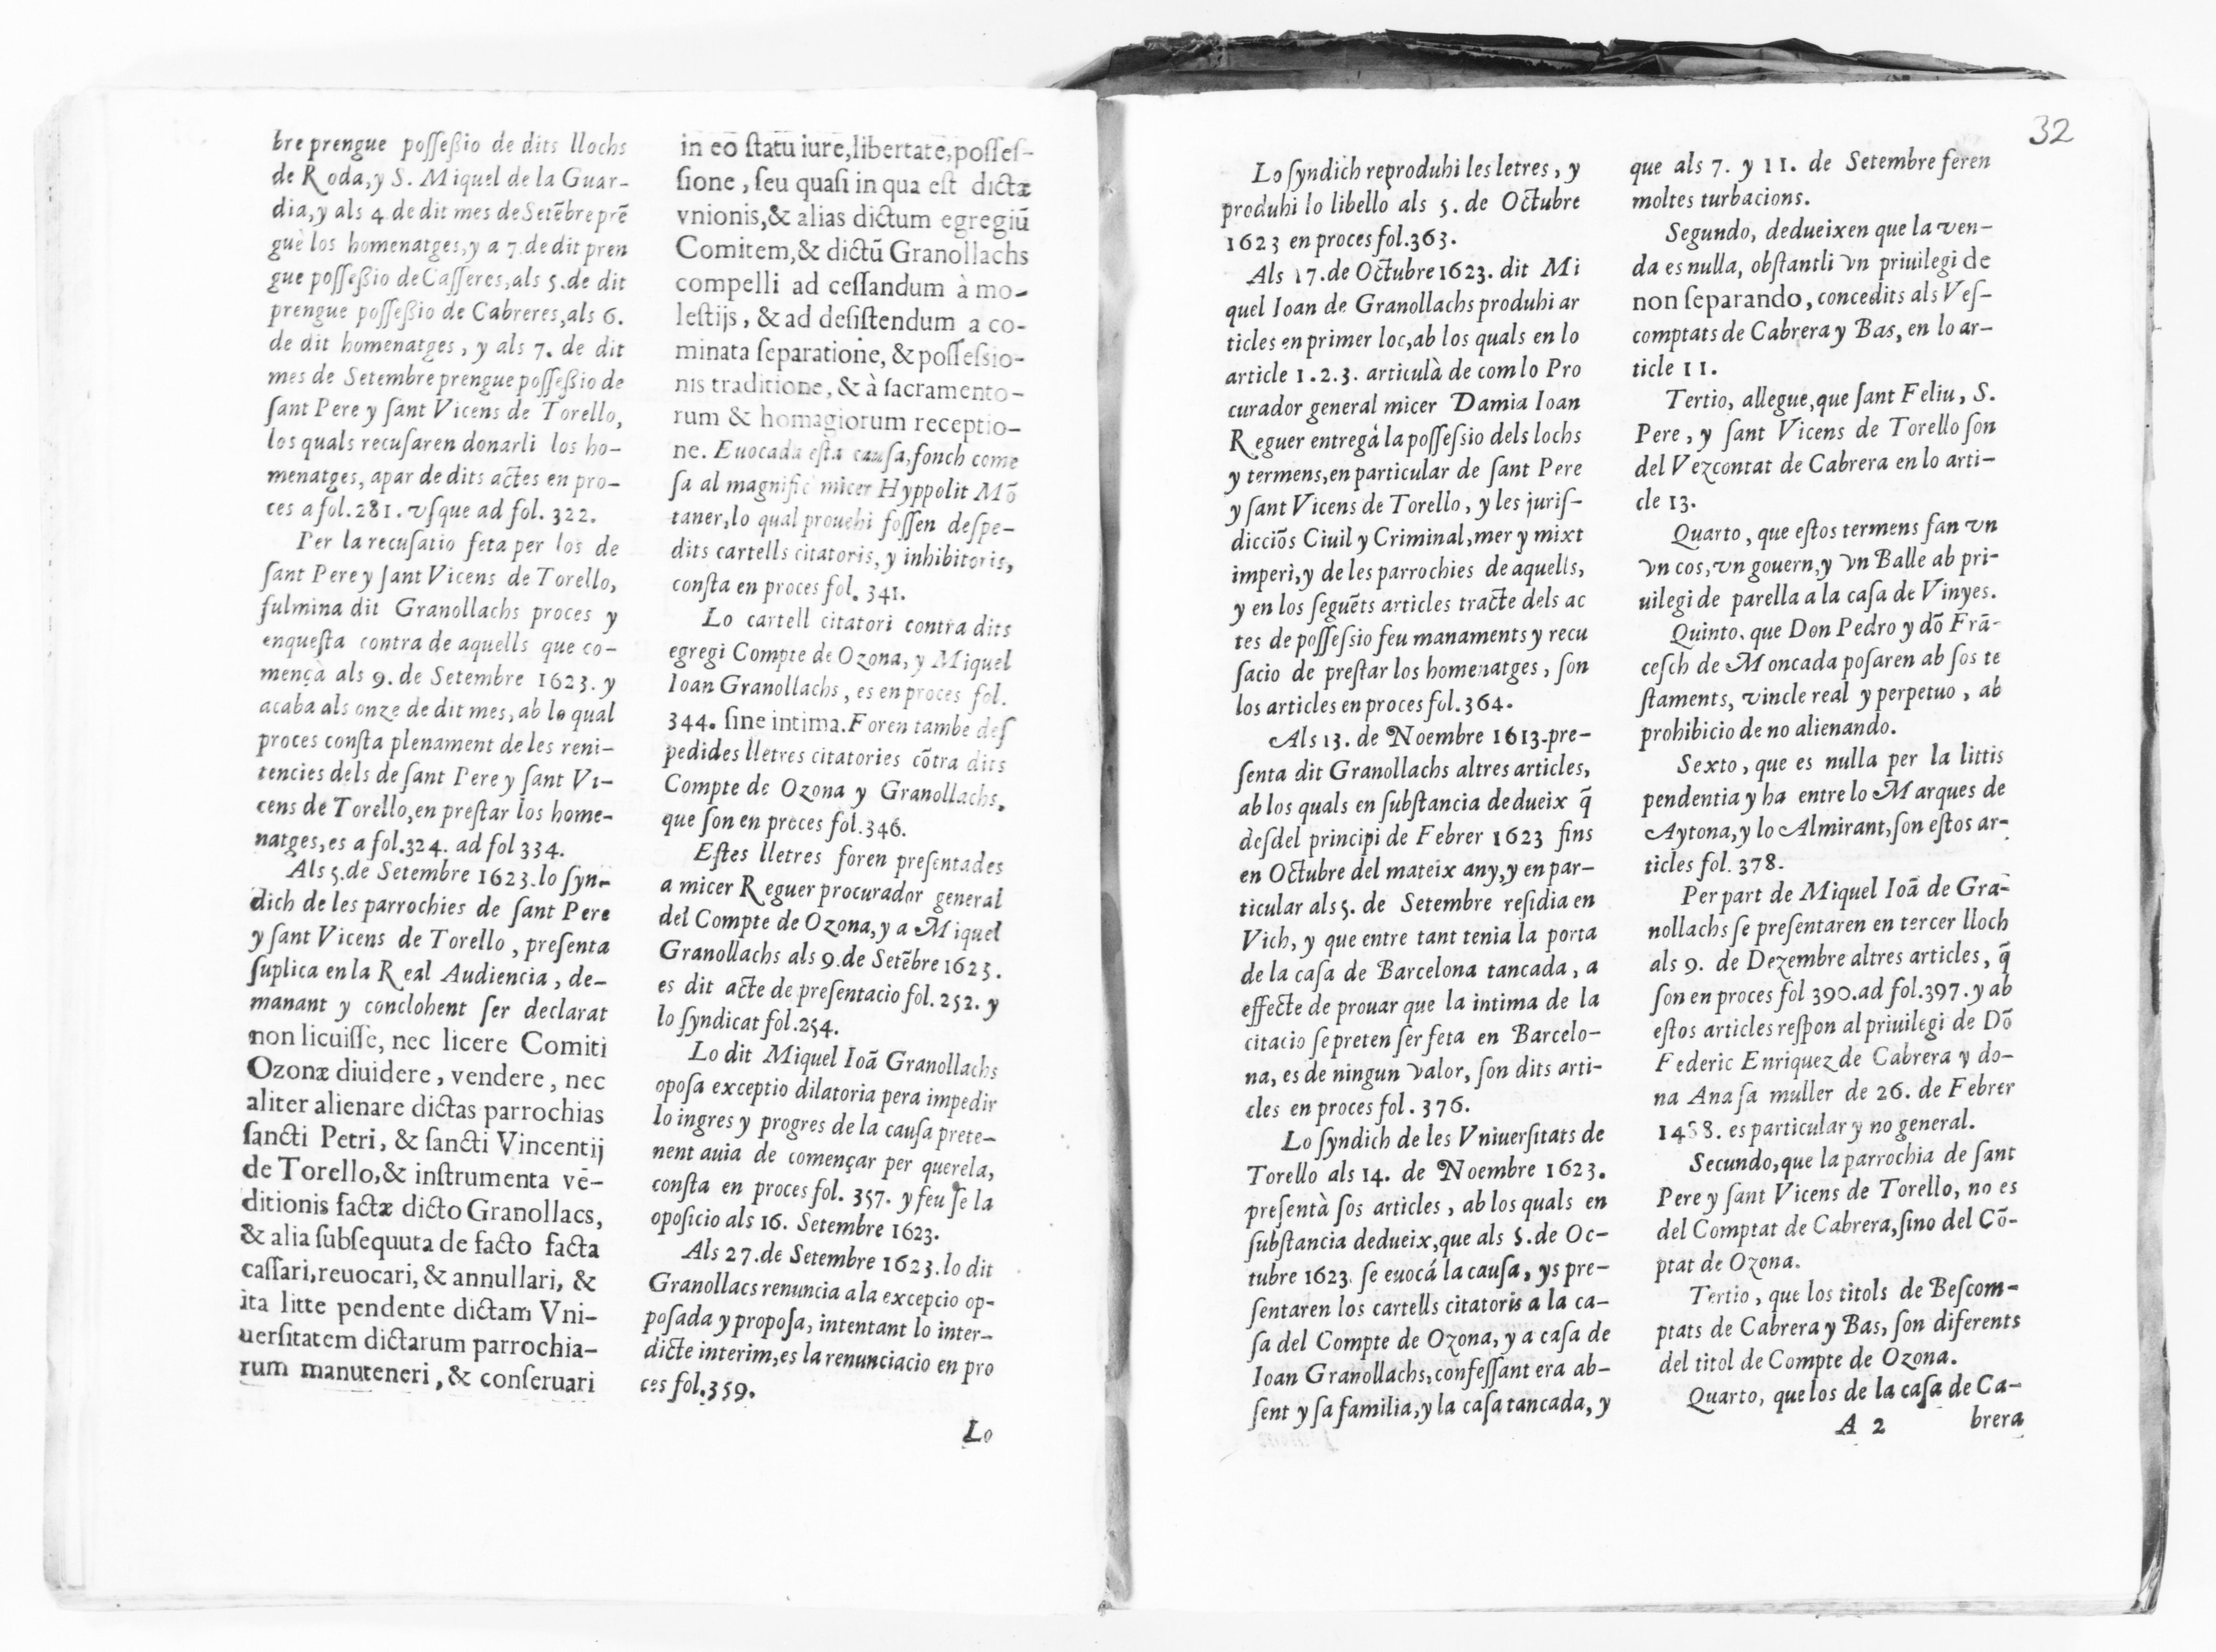 bre prengue poſſeßio de dits llochs
de Roda, y S. Miquel de la Guar-
dia, y als 4 de dit mes de Setẽbre prẽ
guè los homenatges, y a 7. de dit pren
gue poſſeßio de Caſſeres, als 5. de dit
prengue poſſeßio de Cabreres, als 6.
de dit homenatges, y als 7. de dit
mes de Setembre prengue poſſeßio de
ſant Pere y ſant Vicens de Torello,
los quals recuſaren donarli los ho-
menatges, apar de dits actes en pro-
ces a fol. 281. vſque ad fol. 322.
Per la recuſatio feta per los de
ſant Pere y ſant Vicens de Torello,
fulmina dit Granollachs proces y
enqueſta contra de aquells que co-
mençà als 9. de Setembre 1623. y
acaba als onze de dit mes, ab lo qual
proces conſta plenament de les reni-
tencies dels de ſant Pere y ſant Vi-
cens de Torello, en preſtar los home-
natges, es a fol. 324. ad fol 334.
Als 5. de Setembre 1623. lo ſyn-
dich de les parrochies de ſant Pere
y ſant Vicens de Torello, preſenta
ſuplica en la Real Audiencia, de-
manant y conclohent ſer declarat
non licuiſſe, nec licere Comiti
Ozonæ diuidere, vendere, nec
aliter alienare dictas parrochias
ſancti Petri, & ſancti Vincentij
de Torello, & inſtrumenta vẽ-
ditionis factæ dicto Granollacs,
& alia ſubſequuta de facto facta
caſſari, reuocari, & annullari, &
ita litte pendente dictam Vni-
uerſitatem dictarum parrochia-
rum manuteneri, & conſeruari
in eo ſtatu iure, libertate, poſſeſ-
ſione, ſeu quaſi in qua eſt dictæ
vnionis, & alias dictum egregiũ
Comitem, & dictũ Granollachs
compelli ad ceſſandum à mo-
leſtijs, & ad deſiſtendum a co-
minata ſeparatione, & poſſeſsio-
nis traditione, & à ſacramento-
rum & homagiorum receptio-
ne. Euocada eſta cauſa, fonch come
ſa al magnific micer Hyppolit Mõ
taner, lo qual prouehi foſſen deſpe-
dits cartells citatoris, y inhibitoris,
conſta en proces fol. 341.
Lo cartell citatori contra dits
egregi Compte de Ozona, y Miquel
Ioan Granollachs, es en proces fol.
344. ſine intima. Foren tambe deſ
pedides lletres citatories cõtra dits
Compte de Ozona y Granollachs,
que ſon en proces fol. 346.
Eſtes lletres foren preſentades
a micer Reguer procurador general
del Compte de Ozona, y a Miquel
Granollachs als 9. de Setẽbre 1623.
es dit acte de preſentacio fol. 252. y
lo ſyndicat fol. 254.
Lo dit Miquel Ioã Granollachs
opoſa exceptio dilatoria pera impedir
lo ingres y progres de la cauſa prete-
nent auia de començar per querela,
conſta en proces fol. 357. y feu ſe la
opoſicio als 16. Setembre 1623.
Als 27. de Setembre 1623. lo dit
Granollacs renuncia a la excepcio op-
poſada y propoſa, intentant lo inter-
dicte interim, es la renunciacio en pro
ces fol. 359.
Lo
32
Lo ſyndich reproduhi les letres, y
produhi lo libello als 5. de Octubre
1623 en proces fol. 363.
Als 17. de Octubre 1623. dit Mi
quel Ioan de Granollachs produhi ar
ticles en primer loc, ab los quals en lo
article 1. 2. 3. articulà de com lo Pro
curador general micer Damia Ioan
Reguer entregà la poſſeſsio dels lochs
y termens, en particular de ſant Pere
y ſant Vicens de Torello, y les juriſ-
dicciõs Ciuil y Criminal, mer y mixt
imperi, y de les parrochies de aquells,
y en los ſeguẽts articles tracte dels ac
tes de poſſeſsio feu manaments y recu
ſacio de preſtar los homenatges, ſon
los articles en proces fol. 364.
Als 13. de Noembre 1613. pre-
ſenta dit Granollachs altres articles,
ab los quals en ſubſtancia dedueix q̃
deſdel principi de Febrer 1623 fins
en Octubre del mateix any, y en par-
ticular als 5. de Setembre reſidia en
Vich, y que entre tant tenia la porta
de la caſa de Barcelona tancada, a
effecte de prouar que la intima de la
citacio ſe preten ſer feta en Barcelo-
na, es de ningun valor, ſon dits arti-
cles en proces fol. 376.
Lo ſyndich de les Vniuerſitats de
Torello als 14. de Noembre 1623.
preſentà ſos articles, ab los quals en
ſubſtancia dedueix, que als 5. de Oc-
tubre 1623. ſe euocá la cauſa, ys pre-
ſentaren los cartells citatoris a la ca-
ſa del Compte de Ozona, y a caſa de
Ioan Granollachs, confeſſant era ab-
ſent y ſa familia, y la caſa tancada, y
que als 7. y 11. de Setembre feren
moltes turbacions.
Segundo, dedueixen que la ven-
da es nulla, obſtantli vn priuilegi de
non ſeparando, concedits als Veſ-
comptats de Cabrera y Bas, en lo ar-
ticle 11.
Tertio, allegue, que ſant Feliu, S.
Pere, y ſant Vicens de Torello ſon
del Vezcontat de Cabrera en lo arti-
cle 13.
Quarto, que eſtos termens ſan vn
vn cos, vn gouern, y vn Balle ab pri-
uilegi de parella a la caſa de Vinyes.
Quinto, que Don Pedro y dõ Frã-
ceſch de Moncada poſaren ab ſos te
ſtaments, vincle real y perpetuo, ab
prohibicio de no alienando.
Sexto, que es nulla per la littis
pendentia y ha entre lo Marques de
Aytona, y lo Almirant, ſon eſtos ar-
ticles fol. 378.
Per part de Miquel Ioã de Gra-
nollachs ſe preſentaren en tercer lloch
als 9. de Dezembre altres articles, q̃
ſon en proces fol 390. ad fol. 397. y ab
eſtos articles reſpon al priuilegi de Dõ
Federic Enriquez de Cabrera y do-
na Ana ſa muller de 26. de Febrer
1488. es particular y no general.
Secundo, que la parrochia de ſant
Pere y ſant Vicens de Torello, no es
del Comptat de Cabrera, ſino del Cõ-
ptat de Ozona.
Tertio, que los titols de Beſcom-
ptats de Cabrera y Bas, ſon diferents
del titol de Compte de Ozona.
Quarto, que los de la caſa de Ca-
A 2 brera